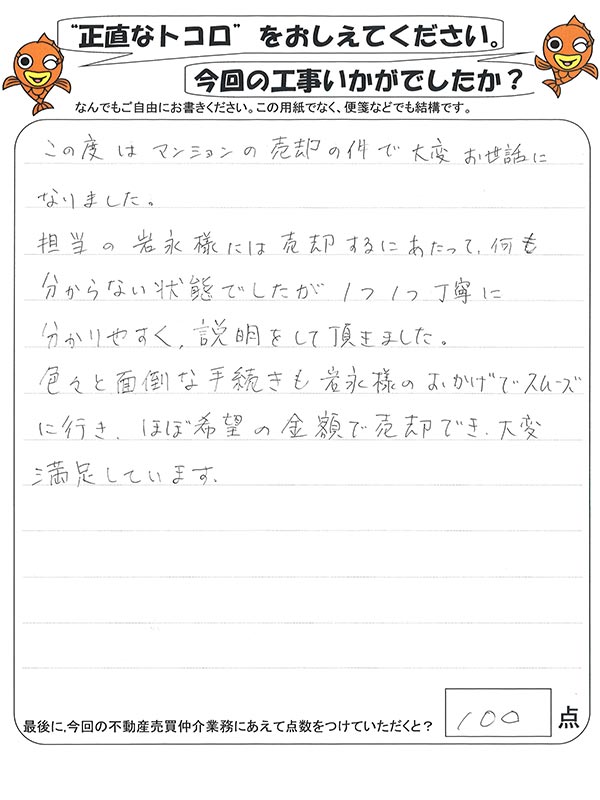 “正直なトコロ”をおしえてください。
今回の工事いかがでしたか?
なんでもご自由にお書きください。この用紙でなく、便箋などでも結構です。
この度は マンションの 売却の件で 大変 お世話に
なりました。
担当の 岩永様には 売却するにあたって、何も
分からない状態でしたが 1つ1つ丁寧に
分かりやすく、説明をして頂きました。
色々と面倒な手続きも 岩永様の おかげでスムーズ
に行き、ほぼ希望の金額で売却でき、大変
満足しています。
最後に、今回の不動産売買仲介業務にあえて点数をつけていただくと? 100 点